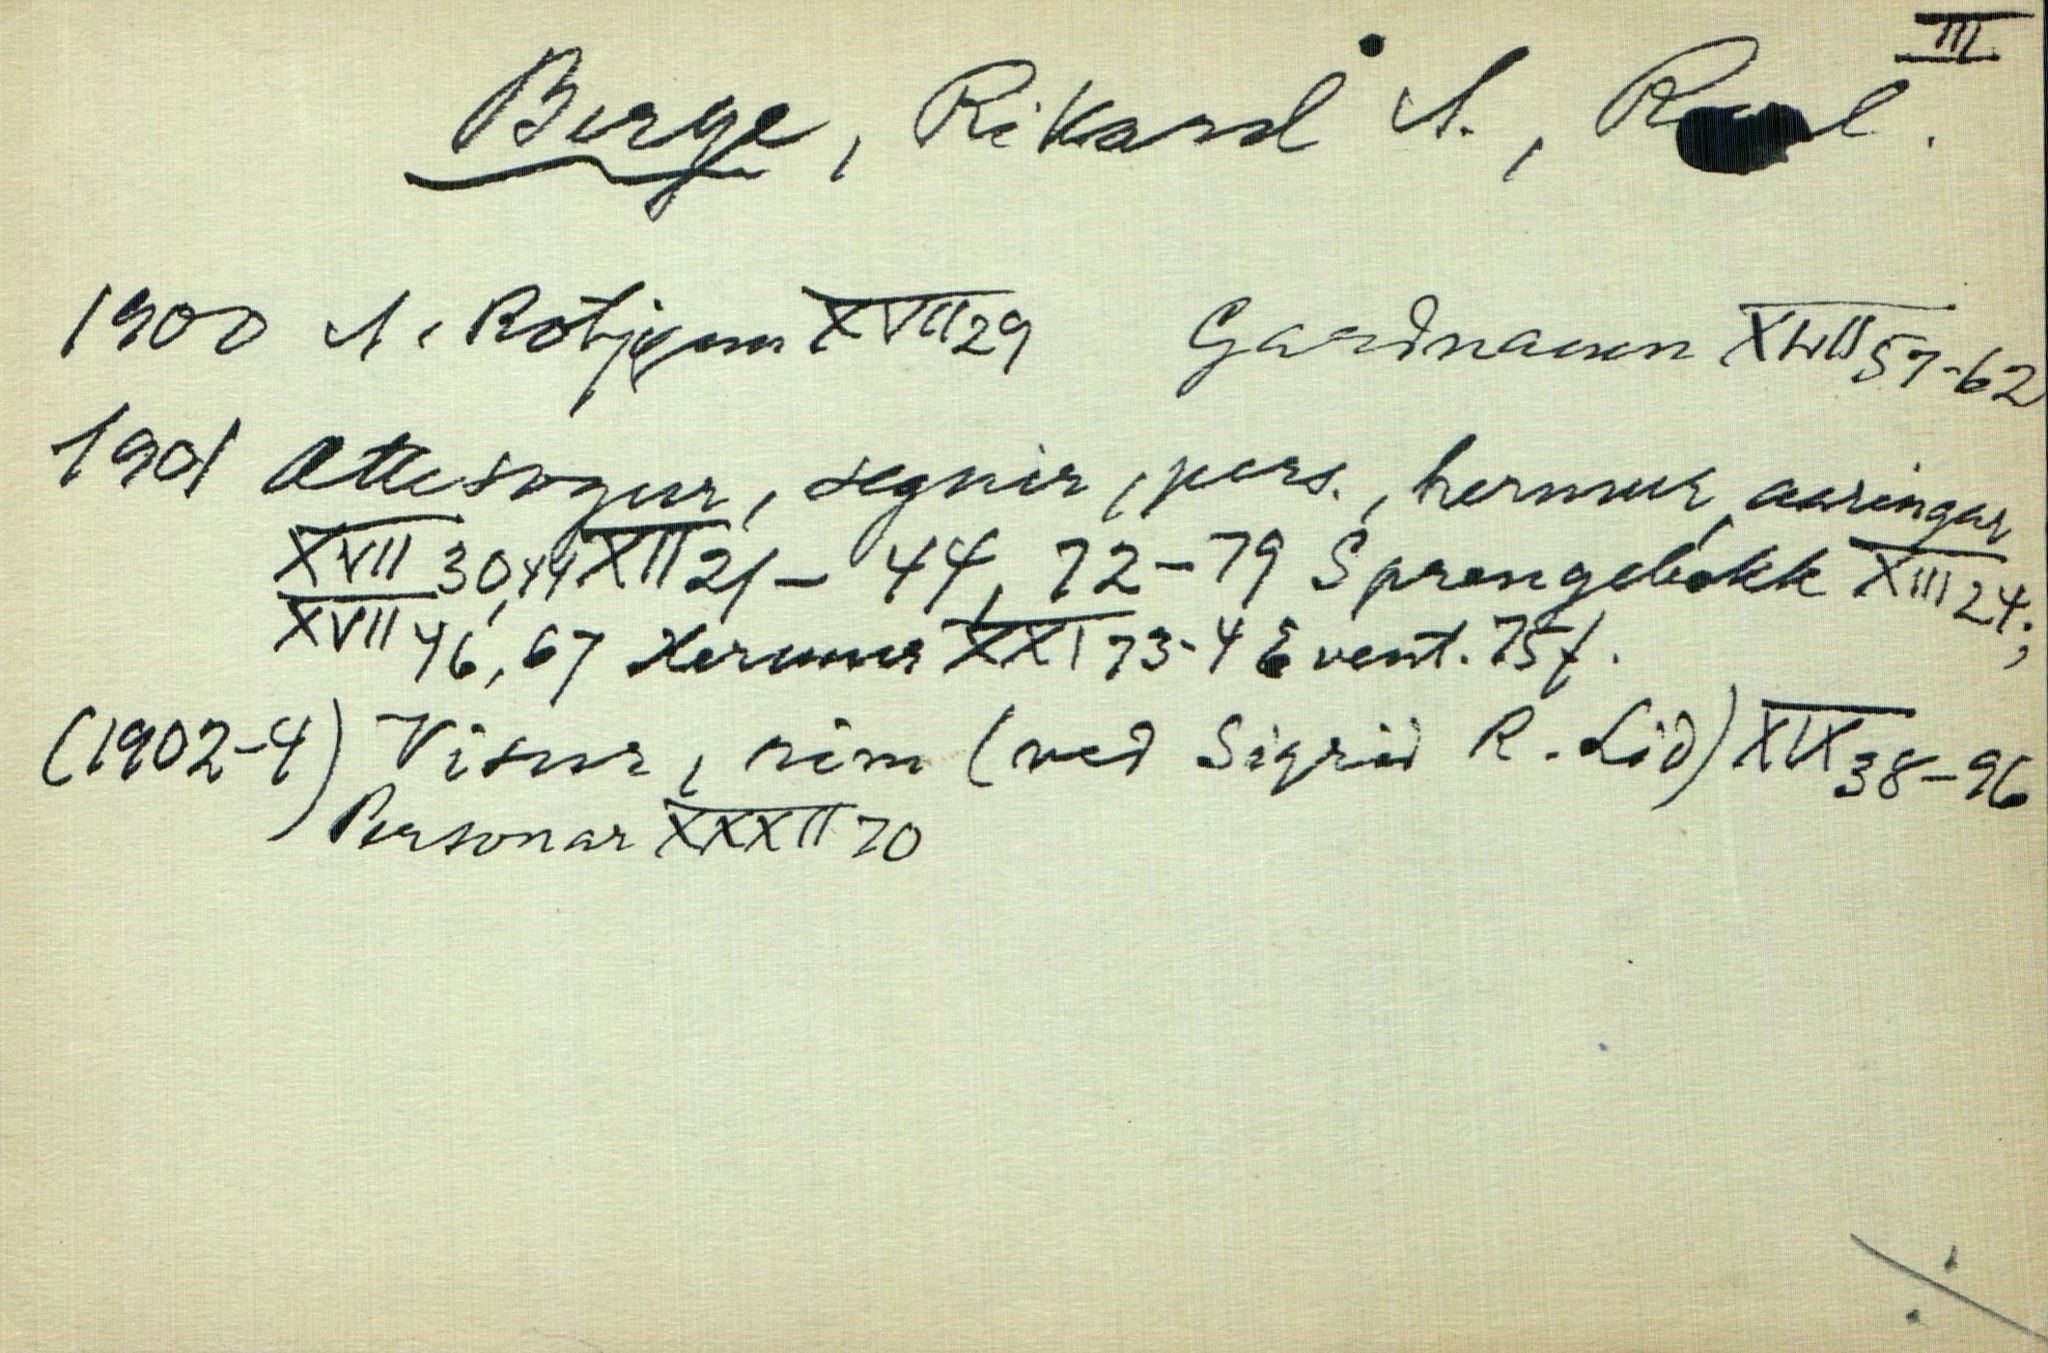 III
Berge, Rikard S., R l.
1900 S. Rotjenn XVII 29 Gardnamn 57-62
1901 Ættesogur, segnir, pers., hermur, aaringar
XVII 30,44 XII 21-44, 72-79 Sprengebokk XIII 24;
XVII 46, 67 Hermur XXI 73-4 Event. 75f.
(1902-4) Visur, rim (ved Sigrid R. Lid) XIX 38-96
Personar XXXII 70